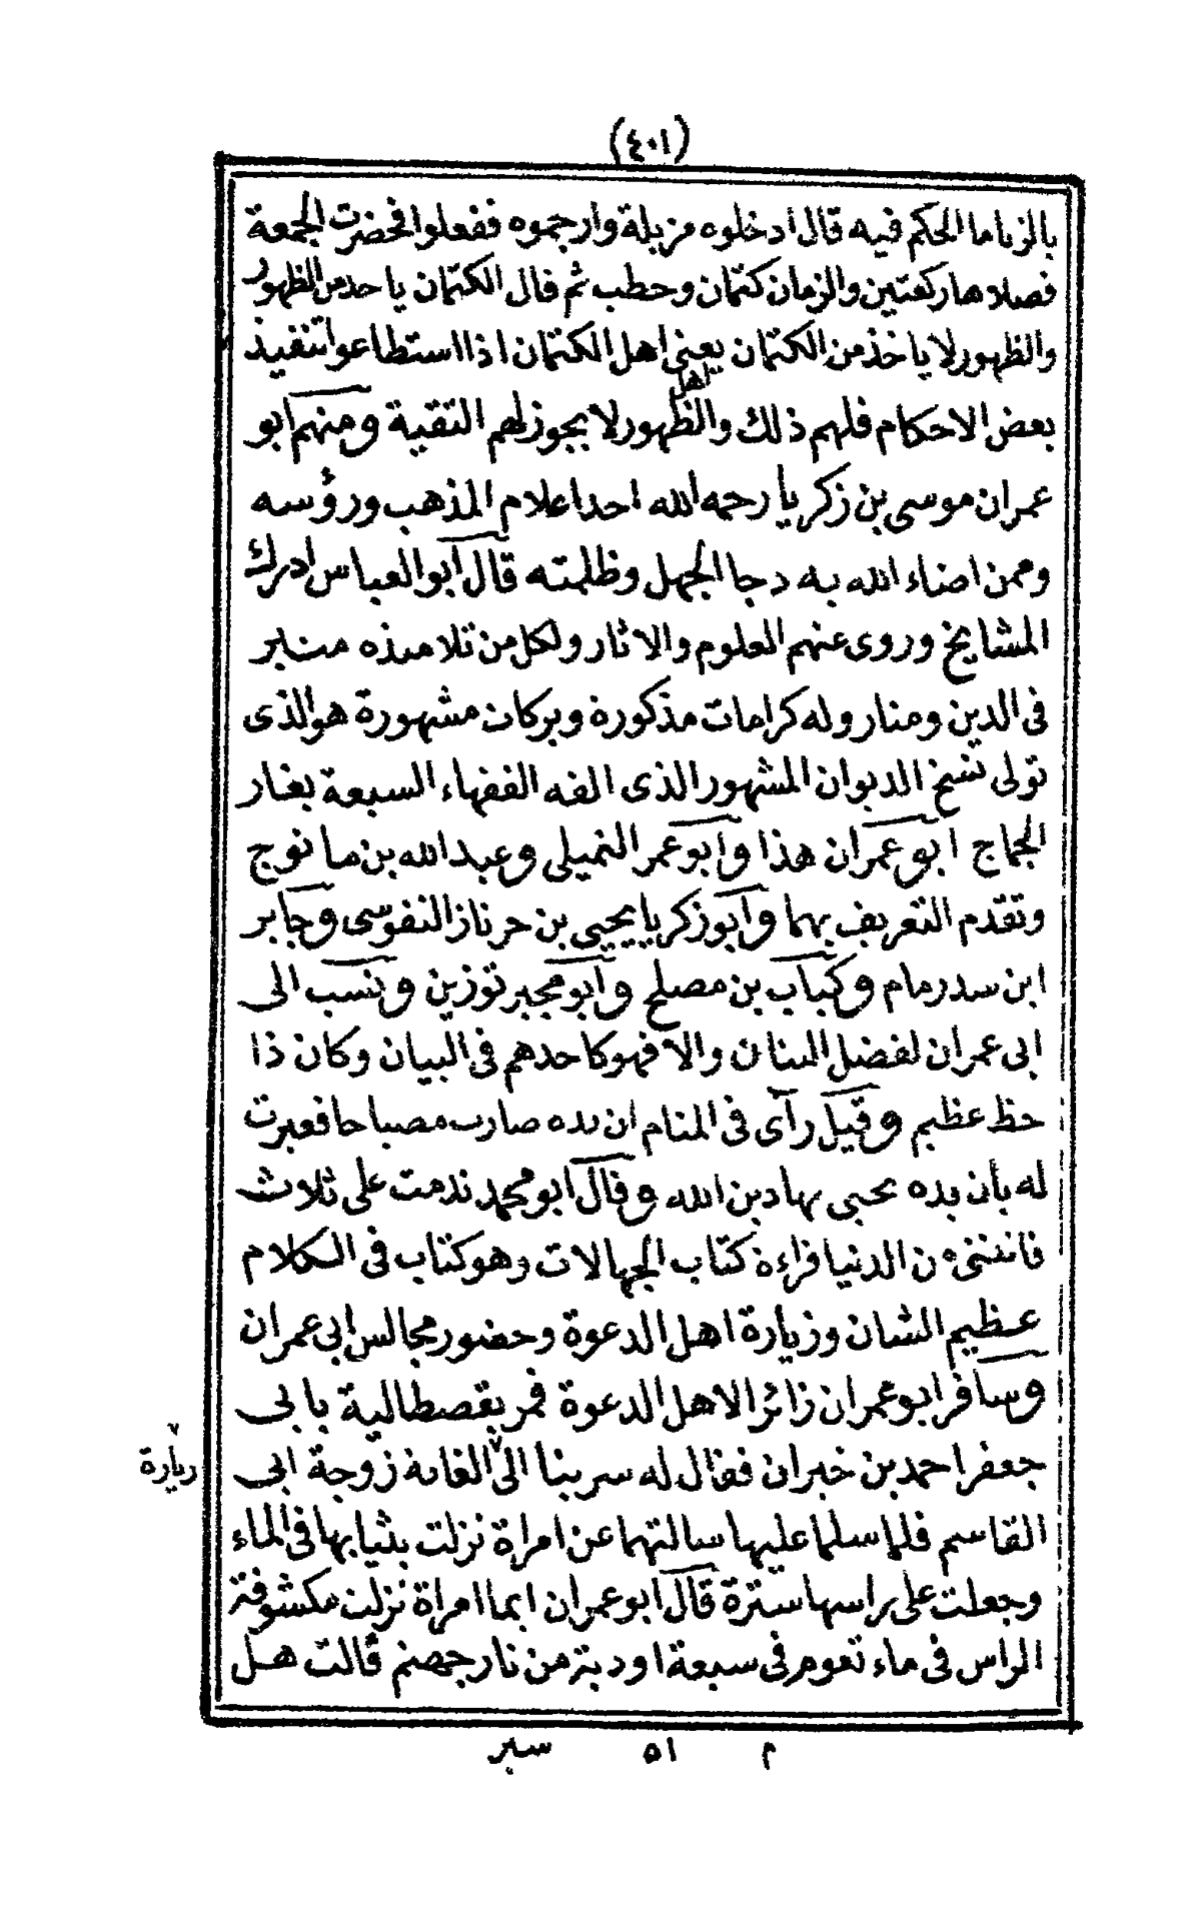 (٤٠١)
بالزنا ما الحكم فيه قال ادخلوه مزبلة وارجموه ففعلوا فحضرت الجمعة
فصلاها ركعتين والزمان كتمان وحطب ثم قال الكتمان ياخذ من الظهور
والظهور لا ياخذ من الكتمان يعنى اهل الكتمان اذا استطاعوا تنفيذ
بعض الاحكام فلهم ذلك واهل الظهور لا يجوز لهم التقية ومنهم ابو
عمران موسى بن زكريا رحمه الله احد اعلام المذهب ورؤسه
وممن اضاء الله به دجا الجهل وظلمته قال ابو العباس ادرك
المشايخ وروى عنهم العلوم والاثار ولكل من تلامذه منبر
فى الدين ومنار وله كرامات مذكورة وبركات مشهورة هو الذى
تولى نسخ الديوان المشهور الذى الفه الفقهاء السبعة بغار
الجماج ابو عمران هذا وابو عمر النميلى وعبد الله بن مانوج
وتقدم التعريف بهما وابو زكريا يحيى بن جرناز النفوسى وجابر
ابن سدرمام وكباب بن مصلح وابو مجبر توزين ونسب الى
ابى عمران لفضل البنان والا فهو كاحدهم فى البيان وكان ذا
حظ عظيم وقيل رآى فى المنام ان يده صارت مصباحا فعبرت
له بأن يده يحيى بها دين الله وقال ابو محمد ندمت على ثلاث
فاتتنى من الدنيا قراءة كتاب الجهالات وهو كتاب فى الكلام
عظيم الشان وزيارة اهل الدعوة وحضور مجالس ابى عمران
وسافر ابو عمران زائرا لاهل الدعوة فمر بقصطالية بابى
جعفر احمد بن خيران فقال له سر بنا الى الغاية زوجة ابى
زيارة
القاسم فلما سلما عليها سالتهما عن امراة نزلت بثيابها فى الماء
وجعلت على راسها سترة قال ابو عمران ايما امراة نزلت مكشوفة
الراس فى ماء تعوم فى سبعة اودية من نار جهنم قالت هل
م ٥١ سير